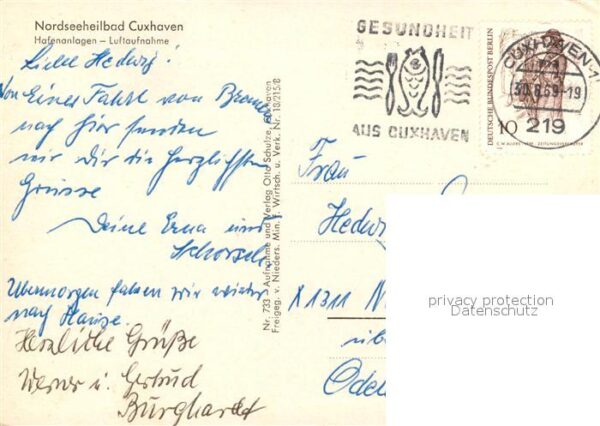 Nordseeheilbad Cuxhaven
Hafenanlagen – Luftaufnahme
Liebe Hedwig!
Von einer Fahrt von
nach hier senden
wir Dir die herzlichsten
Grüsse
Deine Erna und
Schorsch
Übermorgen fahren wir wieder
nach Hause.
Herzliche Grüße
Werner u. Gertrud
Burghardt
Nr. 733 – Aufnahme und Verlag Otto Schulze, Cuxhaven
Freigeg. v. Nieders. Min. f. Wirtsch. u. Verk. Nr. 18/215/8
GESUNDHEIT
AUS CUXHAVEN
DEUTSCHE BUNDESPOST BERLIN
10
CUXHAVEN 1
30.8.69-19
219
Frau
Hedwig
X 1311 N
über
Ode
privacy protection
Datenschutz